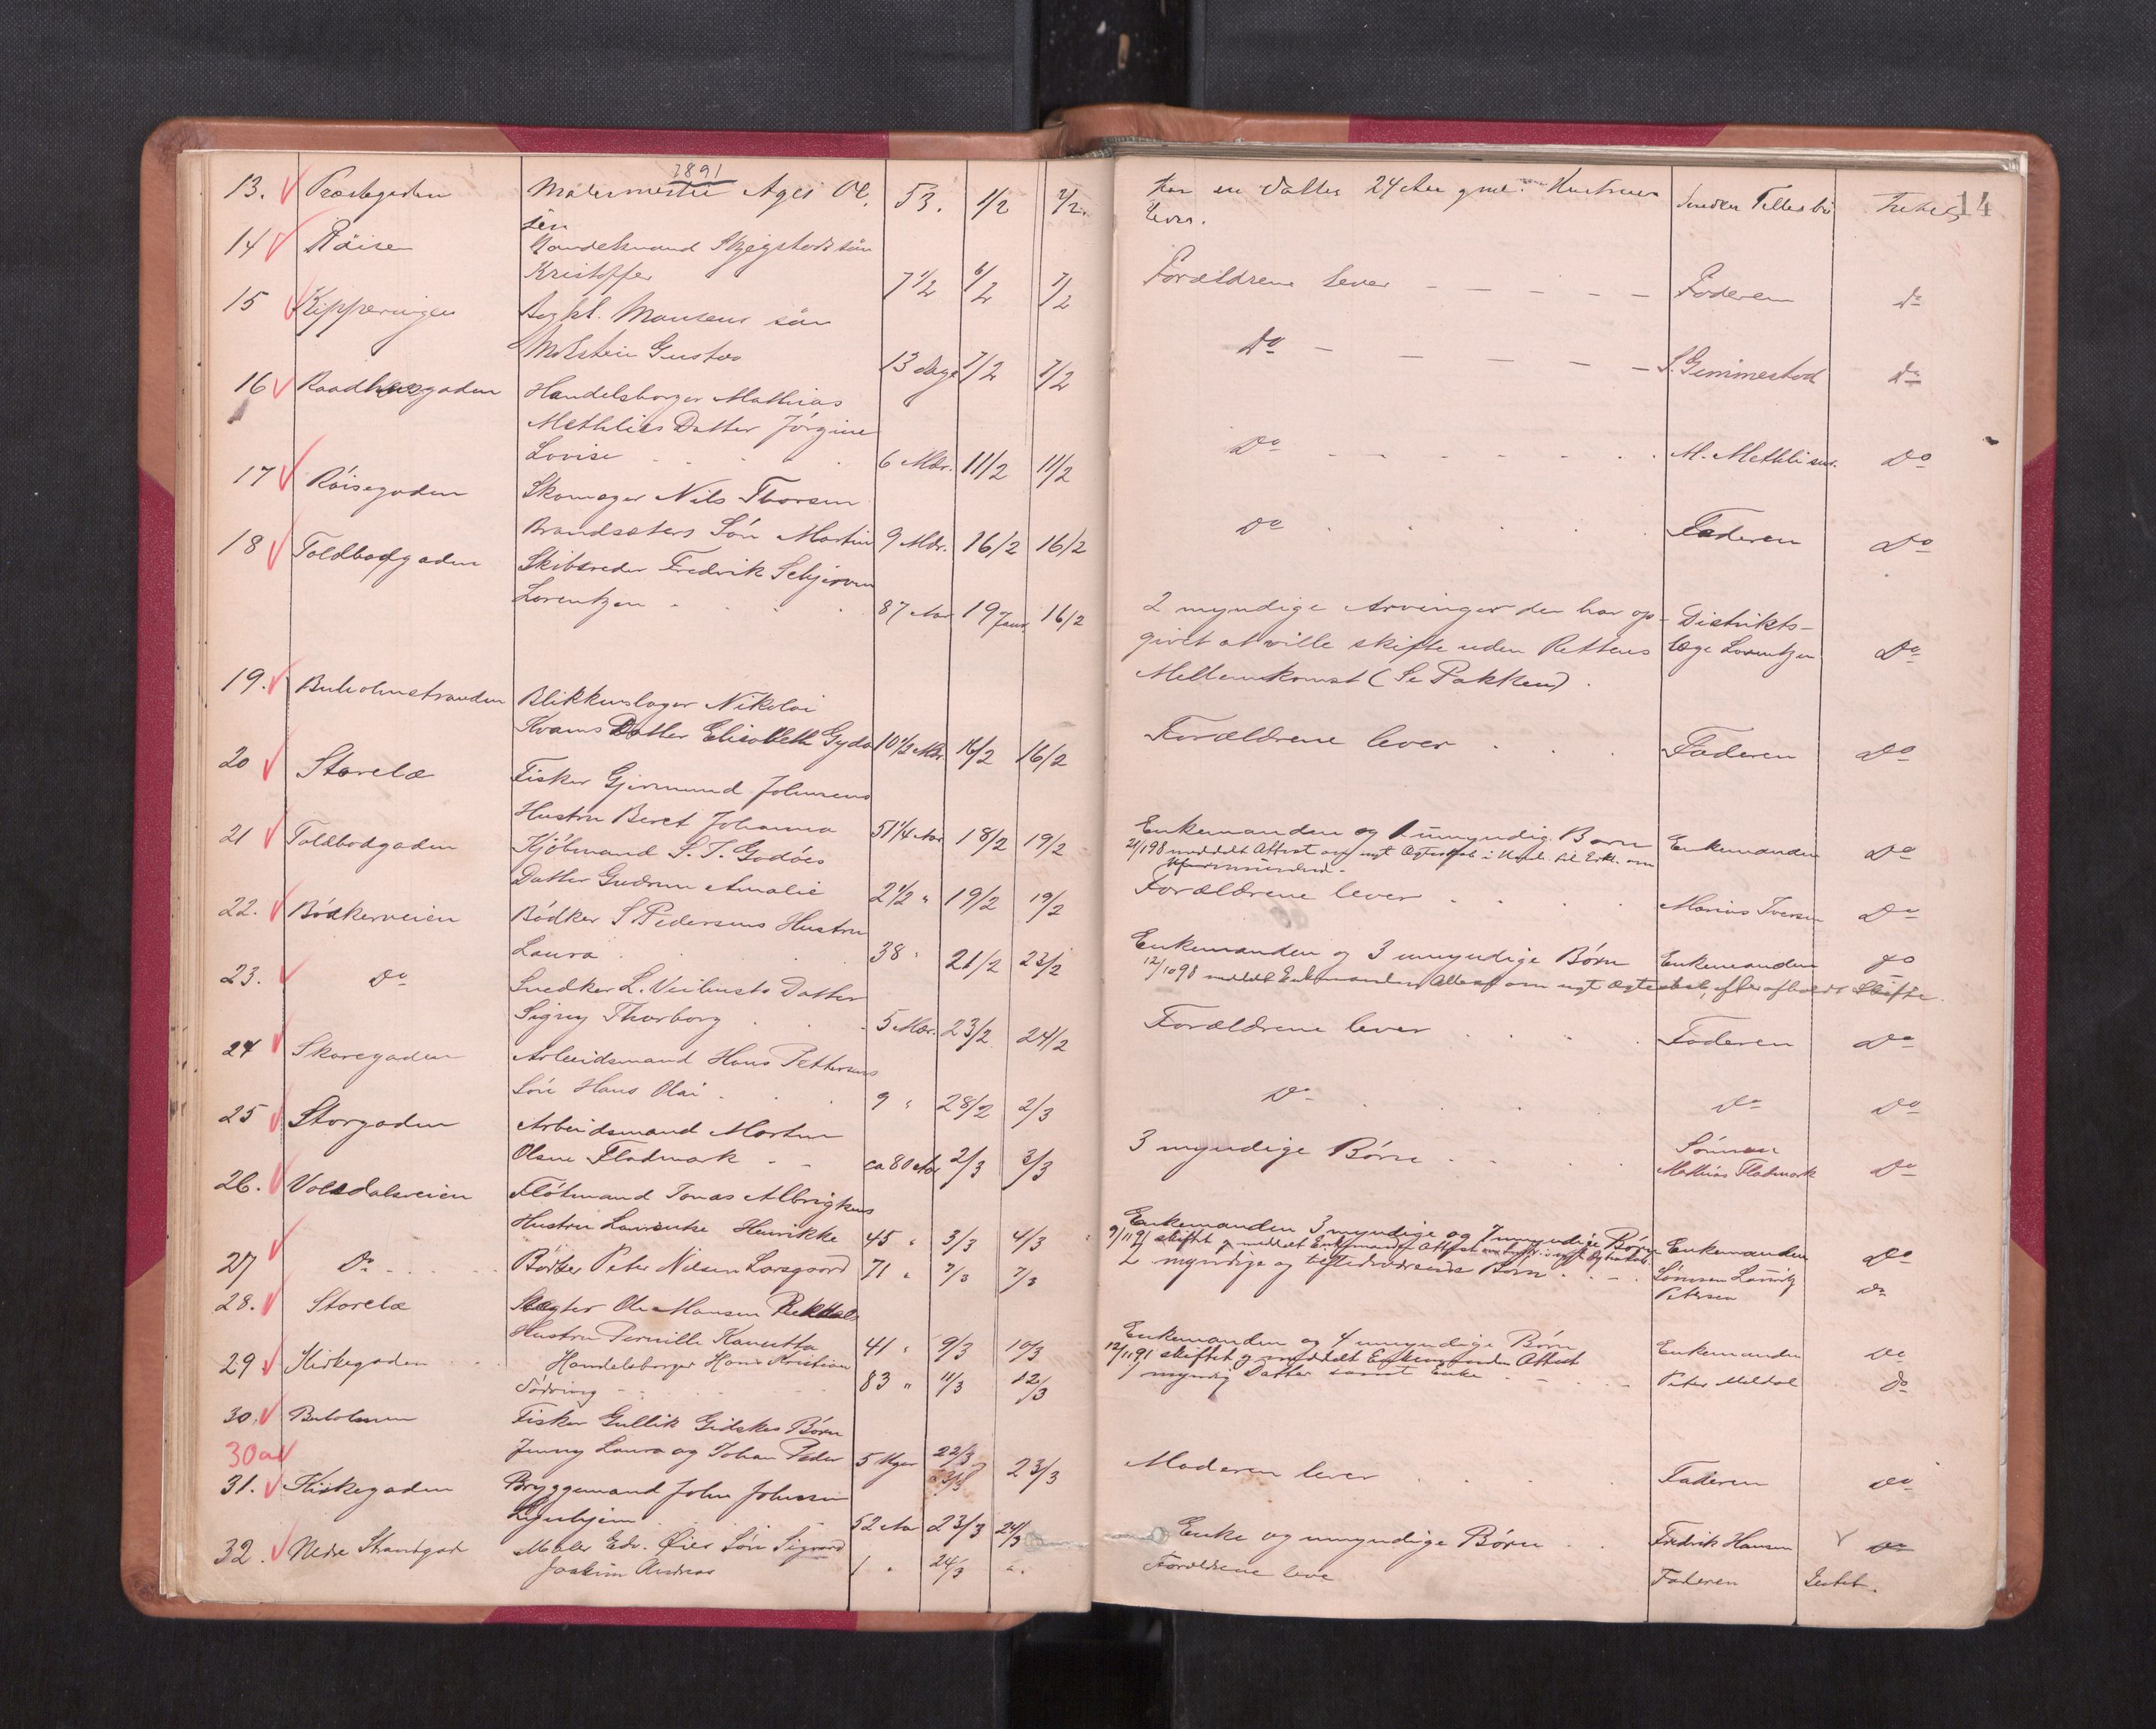 1891
14
13. Præstegaden Malermester Ages Ol. 53. 1/2 2/2. Har en Datter 24 Aar gml. Hustruen Intet
sen lever.
14 Röisen Handelsmand Skjegstads sön
Kristoffer 7 1/2 6/2 7/2 Forældrene lever Faderen Do
15 Kipperviigen Bogh. Monsens sön
Milstein Gustav 13 dage 7/2 7/2 Do S. Gimmestad Do
16 Raadhusgaden Handelsborger Mathias
Methlies Datter Jörgine
Lovise 6 Mdr. 11/2 11/2 Do M. Methli sen. Do
17 Röisegaden Skomager Nils Thorsen
Brandsæters Sön Martin 9 Mdr. 16/2 16/2 Do Faderen Do
18 Toldbodgaden Skibsreder Fredrik Schjerven
Lorentzen 87 Aar 19 Janr. 16/2 2 myndige Arvinger der har op- Distrikts-
givet at ville skifte uden Rettens læge Lorentzen Do
Mellemkomst (Se Pakken).
19. Buholmstranden Blikkenslager Nikolai
Kvams Datter Elisabeth Gyda 10 1/2 Mdr. 16/2 16/2 Forældrene lever Faderen Do
20 Storelæ Fisker Gjermund Johnsens
Hustru Beret Johanna 51 1/4 Aar 18/2 19/2 Enkemanden og 1 umyndig Barn Enkemanden Do
21/198 meddelt Attest om nyt Ægteskab
21 Toldbodgaden Kjöbmand S. T. Godöes
Datter Gudrun Amalie 2 1/2 " 19/2 19/2 Forældrene lever Marius Iversen Do
22. Bödkerveien Bödker S Pedersens Hustru
Laura 38 " 21/2 23/2 Enkemanden og 3 umyndige Börn Enkemanden Do
12/10 98 meddelt Enkemanden Attest om nyt Ægteskab, efter afholdt Skifte.
23. Do Snedker L. Veibusts Datter
Signy Thorborg 5 Mdr. 23/2 24/2 Forældrene lever Faderen Do
24 Skaregaden Arbeidsmand Hans Pettersens
Sön Hans Olai 9 " 28/2 2/3 Do Do Do
25 Storgaden Arbeidsmand Martin
Olsen Fladmark ca 80 Aar 2/3 3/3 3 myndige Börn Sönnen
Mathias Fladmark Do
26. Volsdalsveien Flötmand Jonas Albrigtsens
Hustru Laurentse Henrikke 45 " 3/3 4/3 Enkemanden 3 myndige og 7 umyndige Börn Enkemanden Do
9/11 91 skiftet og meddelt Enkemanden Attest
27 Do Bödker Peter Nilsen Larsgaard 71 " 7/3 7/3 2 myndige og tilstedeværende Börn Sönnen Lauritz
Petersen Do
28. Storelæ Slagter Ole Monsen Rekkdals
Hustru Pernille Kanutta 41 " 9/3 10/3 Enkemanden og 4 umyndige Börn Enkemanden Do
12/11 91 skiftet og meddelt Enkemanden Attest
29 Kirkegaden Handelsborger Hans Kristian
Födring 83 " 11/3 12/3 1 myndig Datter samt Enke Peter Meldal Do
30. Buholmen Fisker Gullik Gidskes Börn
30a Jenny Laura og Johan Peder 5 Uger 22/3 23/3 23/3 Moderen lever Faderen Do
31. Kirkegaden Bryggemand John Johnsen
52 Aar 23/3 24/3 Enke og umyndige Börn Fredrik Hansen Do
32. Nedre Strandgade Maler Edv. Öies Sön Sigvard
Joakim Andreas 1 " 24/3 Forældrene leve Faderen Intet.